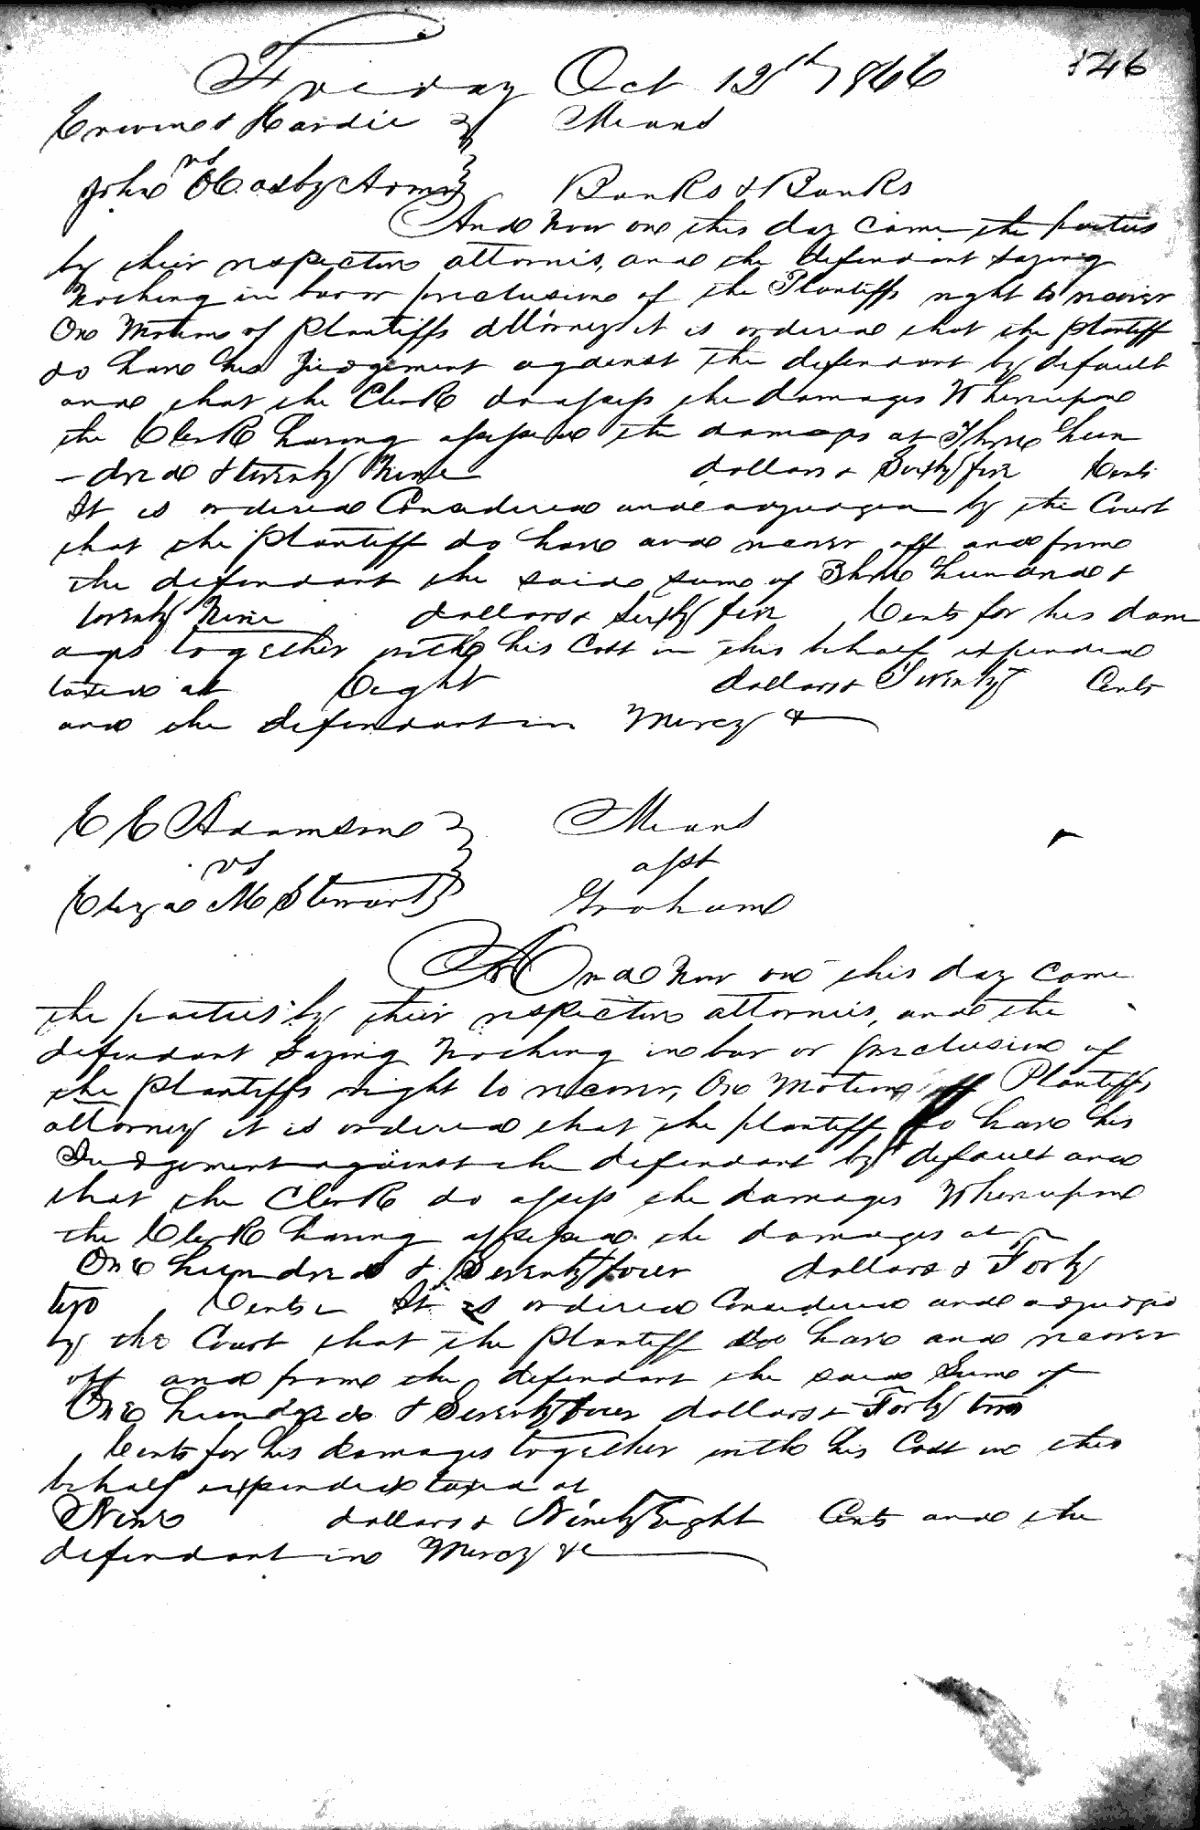 Friday Oct 12th 1866 346
Erwin & Hardie Means
vs
John O Casby Admr Banks & Banks
And now on this day came the parties
by their respective attornies, and the defendant saying
Nothing in bar or preclusion of the Plantiffs right to recover
On Motion of Plantiffs attorney it is ordered that the plantiff
do have his Judgement against the defendant by default
and that the Clerk do assess the damages Whereupon
the Clerk having assessed the damages at Three hun
-dred & twenty Nine dollars & Sixty five Cents
It is ordered Considered and adjudged by the Court
that the plantiff do have and recover off and from
the defendant the said sum of Three hundred &
twenty Nine dollars & Sixty five Cents for his dam
ages together with his Cost in this behalf expended
taxed at Eight dollars & Twenty Cents
and the defendant in Mercy &
E E Adamson Means
vs apt
Eliza M Stewart Graham
And now on this day came
the parties by their respective attornies, and the
defendant Saying Nothing in bar or preclusion of
the plantiffs right to recover, On Motion of Plantiffs
attorney it is ordered that the plantiff do have his
Judgement against the defendant by default and
that the Clerk do assess the damages Whereupon
the Clerk having assessed the damages at
One hundred & Seventy four dollars & Forty
two Cents It is ordered Considered and adjudged
by the Court that the plantiff do have and recover
off and from the defendant the said Sum of
One hundred & Seventy four dollars & Forty two
Cents for his damages together with his Cost in this
behalf expended taxed at
Nine dollars & Ninety Eight Cents and the
defendant in Mercy &c